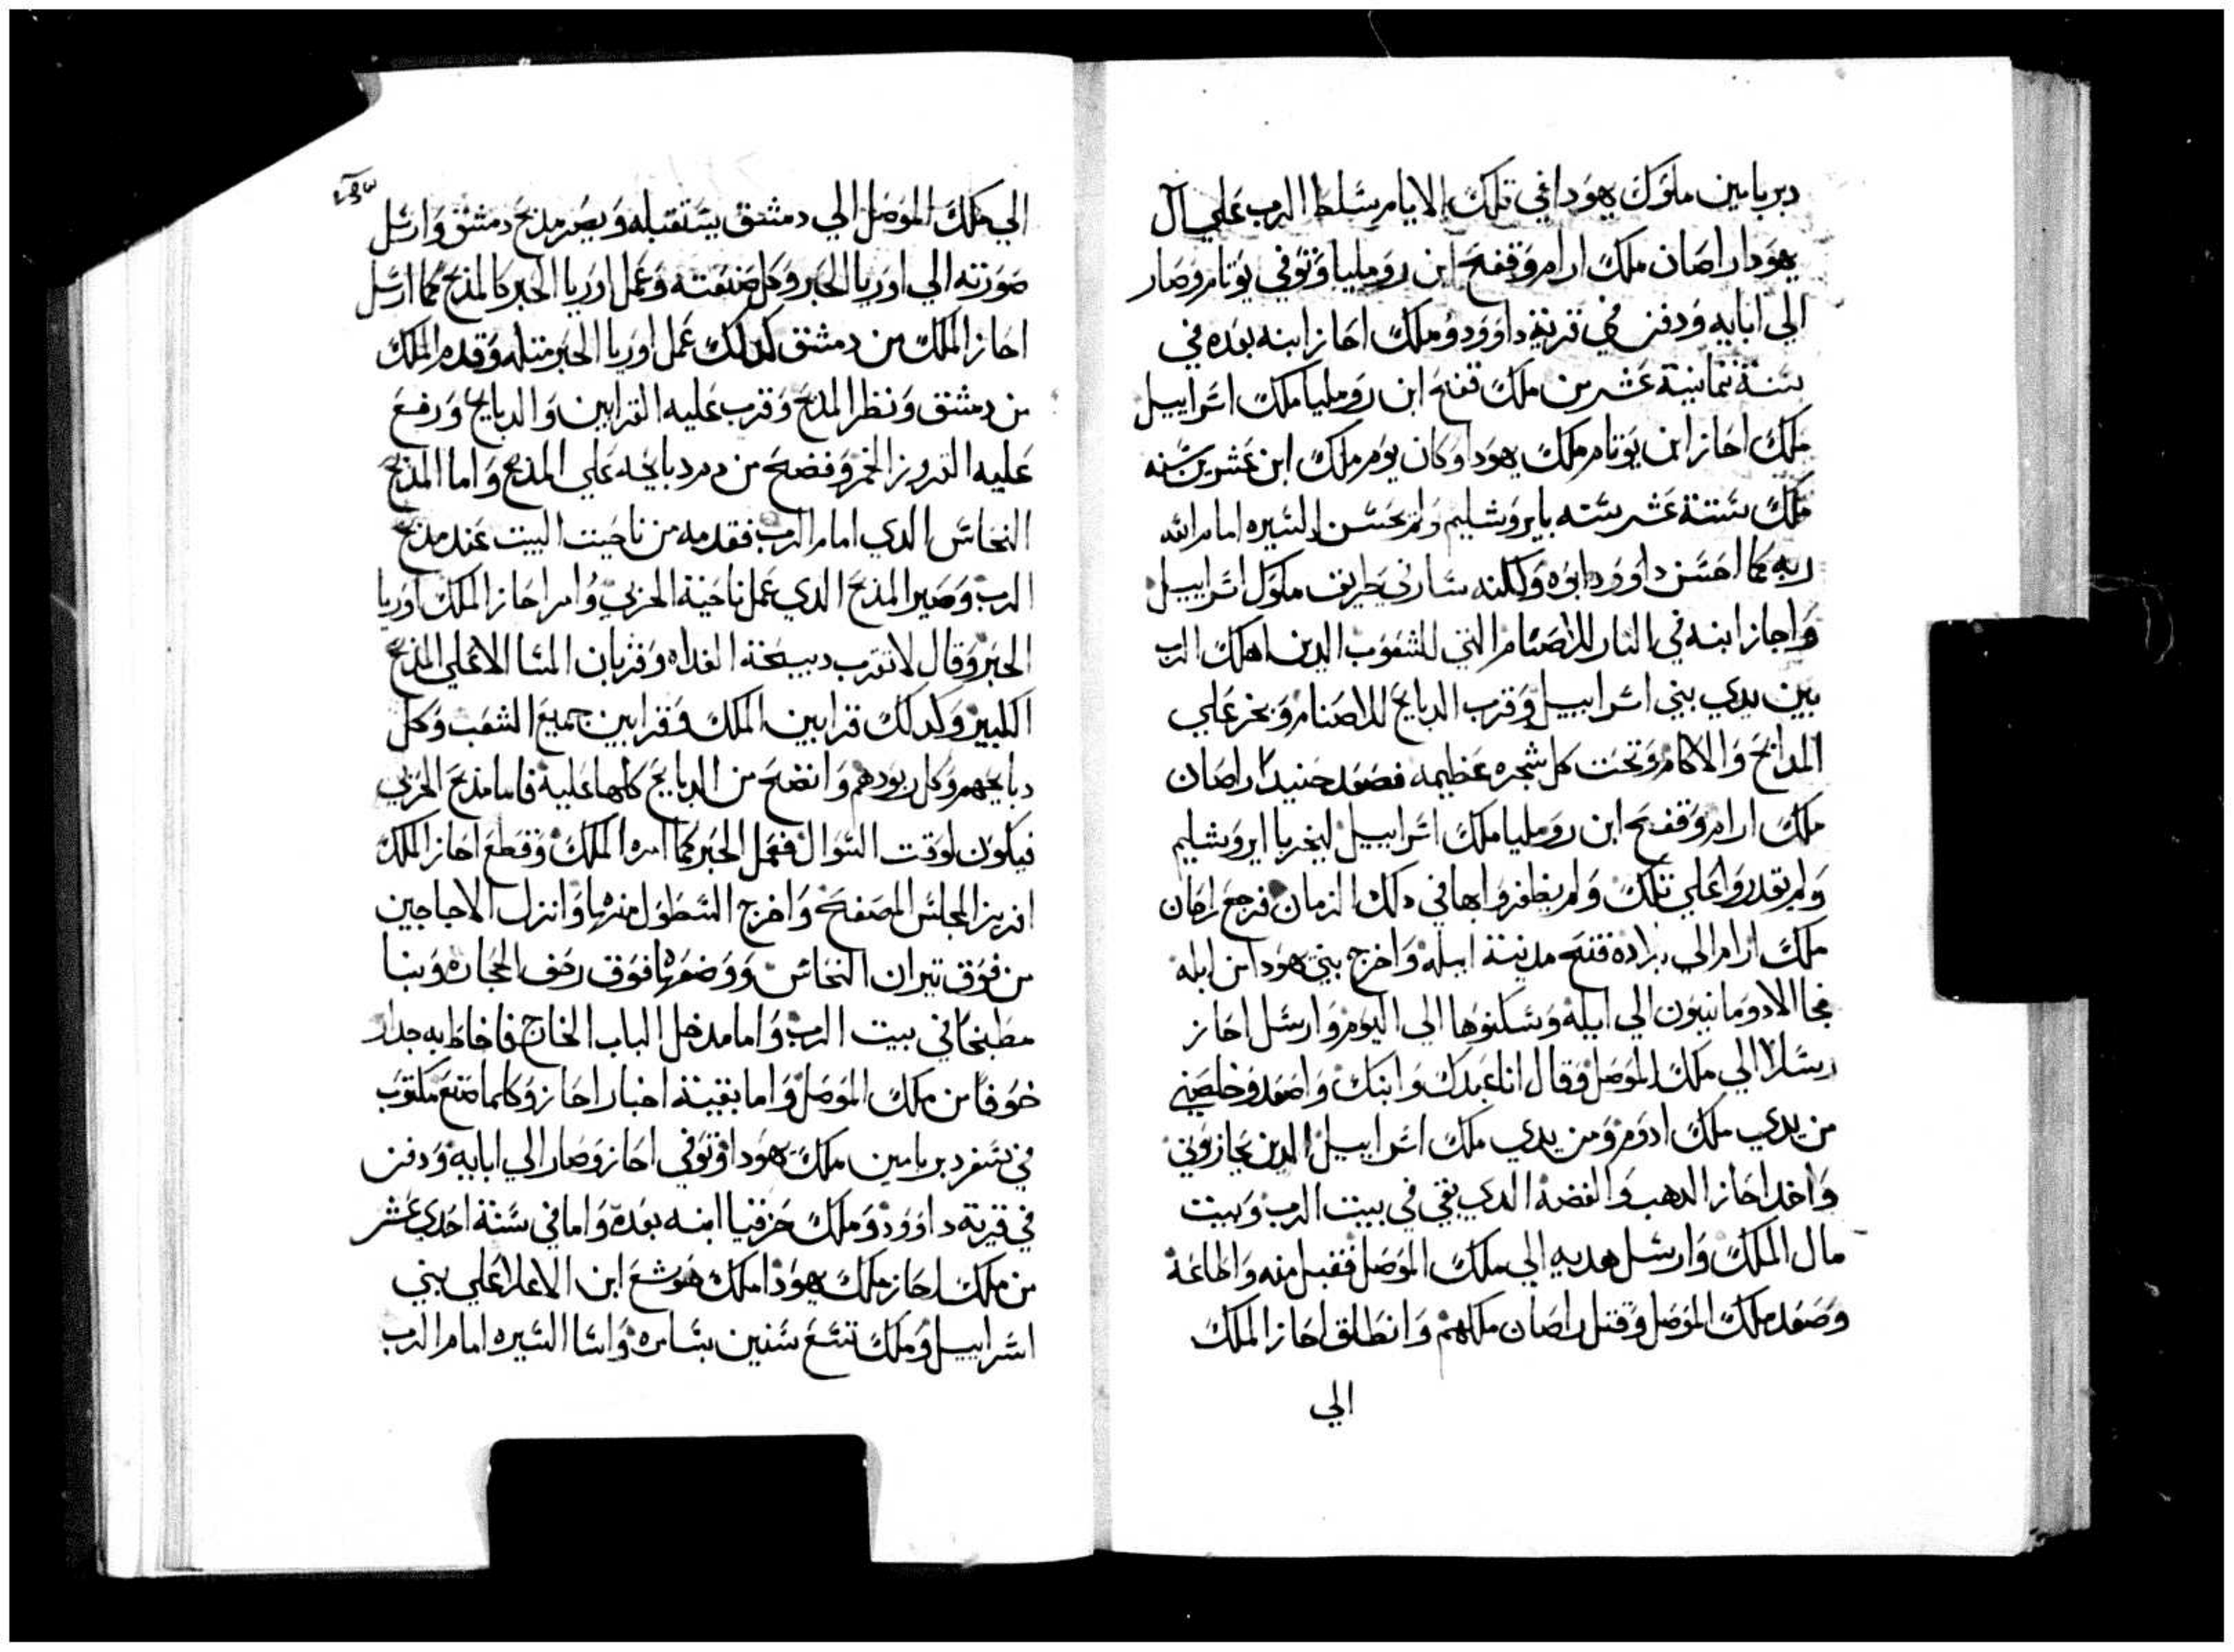 دبريامين ملوك يهودا في تلك الايام سلط الرب علي آل
يهودا راصان ملك ارام وقفح ابن رومليا وتوفي يوتام وصار
الي ابايه ودفن في قرية داوود وملك احاز ابنه بعده في
سنة ثمانية عشر من ملك قفح ابن رومليا ملك اسراييل
ملك احاز ابن يوتام ملك يهودا وكان يوم ملك ابن عشرين سنه
ملك ستة عشر سنه بايروشليم ولم يحسن السيره امام الله
ربه كما احسن داوود ابوه ولكنه سار في طريق ملوك اسراييل
واجاز ابنه في النار للاصنام التي للشعوب الدين اهلك الرب
بين يدي بني اسراييل وقرب الدبايح للاصنام وبخر علي
المدابح والاكام وتحت كل شجره عظيمه فصعد حنيد راصان
ملك ارام وقفح ابن رومليا ملك اسراييل ليخربا ايروشليم
ولم يقدروا علي تلك ولم يظفروا بها في دلك الزمان فرجع راصان
ملك ارام الي بلاده ففتح مدينة ايله واخرج بني يهودا من ايله
فجا الادومانيون الي ايله وسكنوها الي اليوم وارسل احاز
رسلا الي ملك الموصل وقال انا عبدك وابنك واصعد وخلصني
من يدي ملك ادوم ومن يدي ملك اسراييل الدين يحاربوني
واخد احاز الدهب والفضه الدي بقي في بيت الرب وبيت
مال الملك وارسل هديه الي ملك الموصل فقبل منه واطاعه
وصعد ملك الموصل وقتل راصان ملكهم وانطلق احاز الملك
الي
الي ملك الموصل الي دمشق يستقبله وبصر مدبح دمشق وارسل
صورته الي اوريا الحبر وكل صنعته وعمل اوريا الحبر كالمدبح كما ارسل
احاز الملك من دمشق كدلك عمل اوريا الحبر مثله وقدم الملك
من دمشق ونظر المدبح وقرب عليه القرابين والدبايح ورفع
عليه النزور الخمر وفضح من دم دبايحه علي المدبح واما المدبح
النحاس الدي امام الرب فقدمه من ناحيت البيت عند مدبح
الرب وصير المدبح الدي عمل ناحية الحربي وامر احاز الملك اوريا
الحبر وقال لا تقرب دبيحة الغداه وقربان المسا الا علي المدبح
الكبير وكدلك قرابين الملك وقرابين جميع الشعب وكل
دبايحهم وكل ربودهم وانضح من الدبايح كلها عليه فاما مدبح الحربي
فيكون لوقت السوال ففعل الحبر كما امره الملك وقطع احاز الملك
افريز المجلس المصفح واخرج السطول منها وانزل الاجاجين
من فوق تيران النحاس ووضعها فوق رصف الحجاره وبنا
مطبخا في بيت الرب واما مدخل الباب الخارج فاحاط به جدار
خوفا من ملك الموصل واما بقية اخبار احاز وكلما صنع مكتوب
في سفر دبريامين ملك يهودا وتوفي احاز وصار الي ابايه ودفن
في قرية داوود وملك حزقيا ابنه بعده واما في سنة احدي عشر
من ملك احاز ملك يهودا ملك هوشع ابن الاعلا علي بني
اسراييل وملك تسع سنين بسامره واسا السيره امام الرب